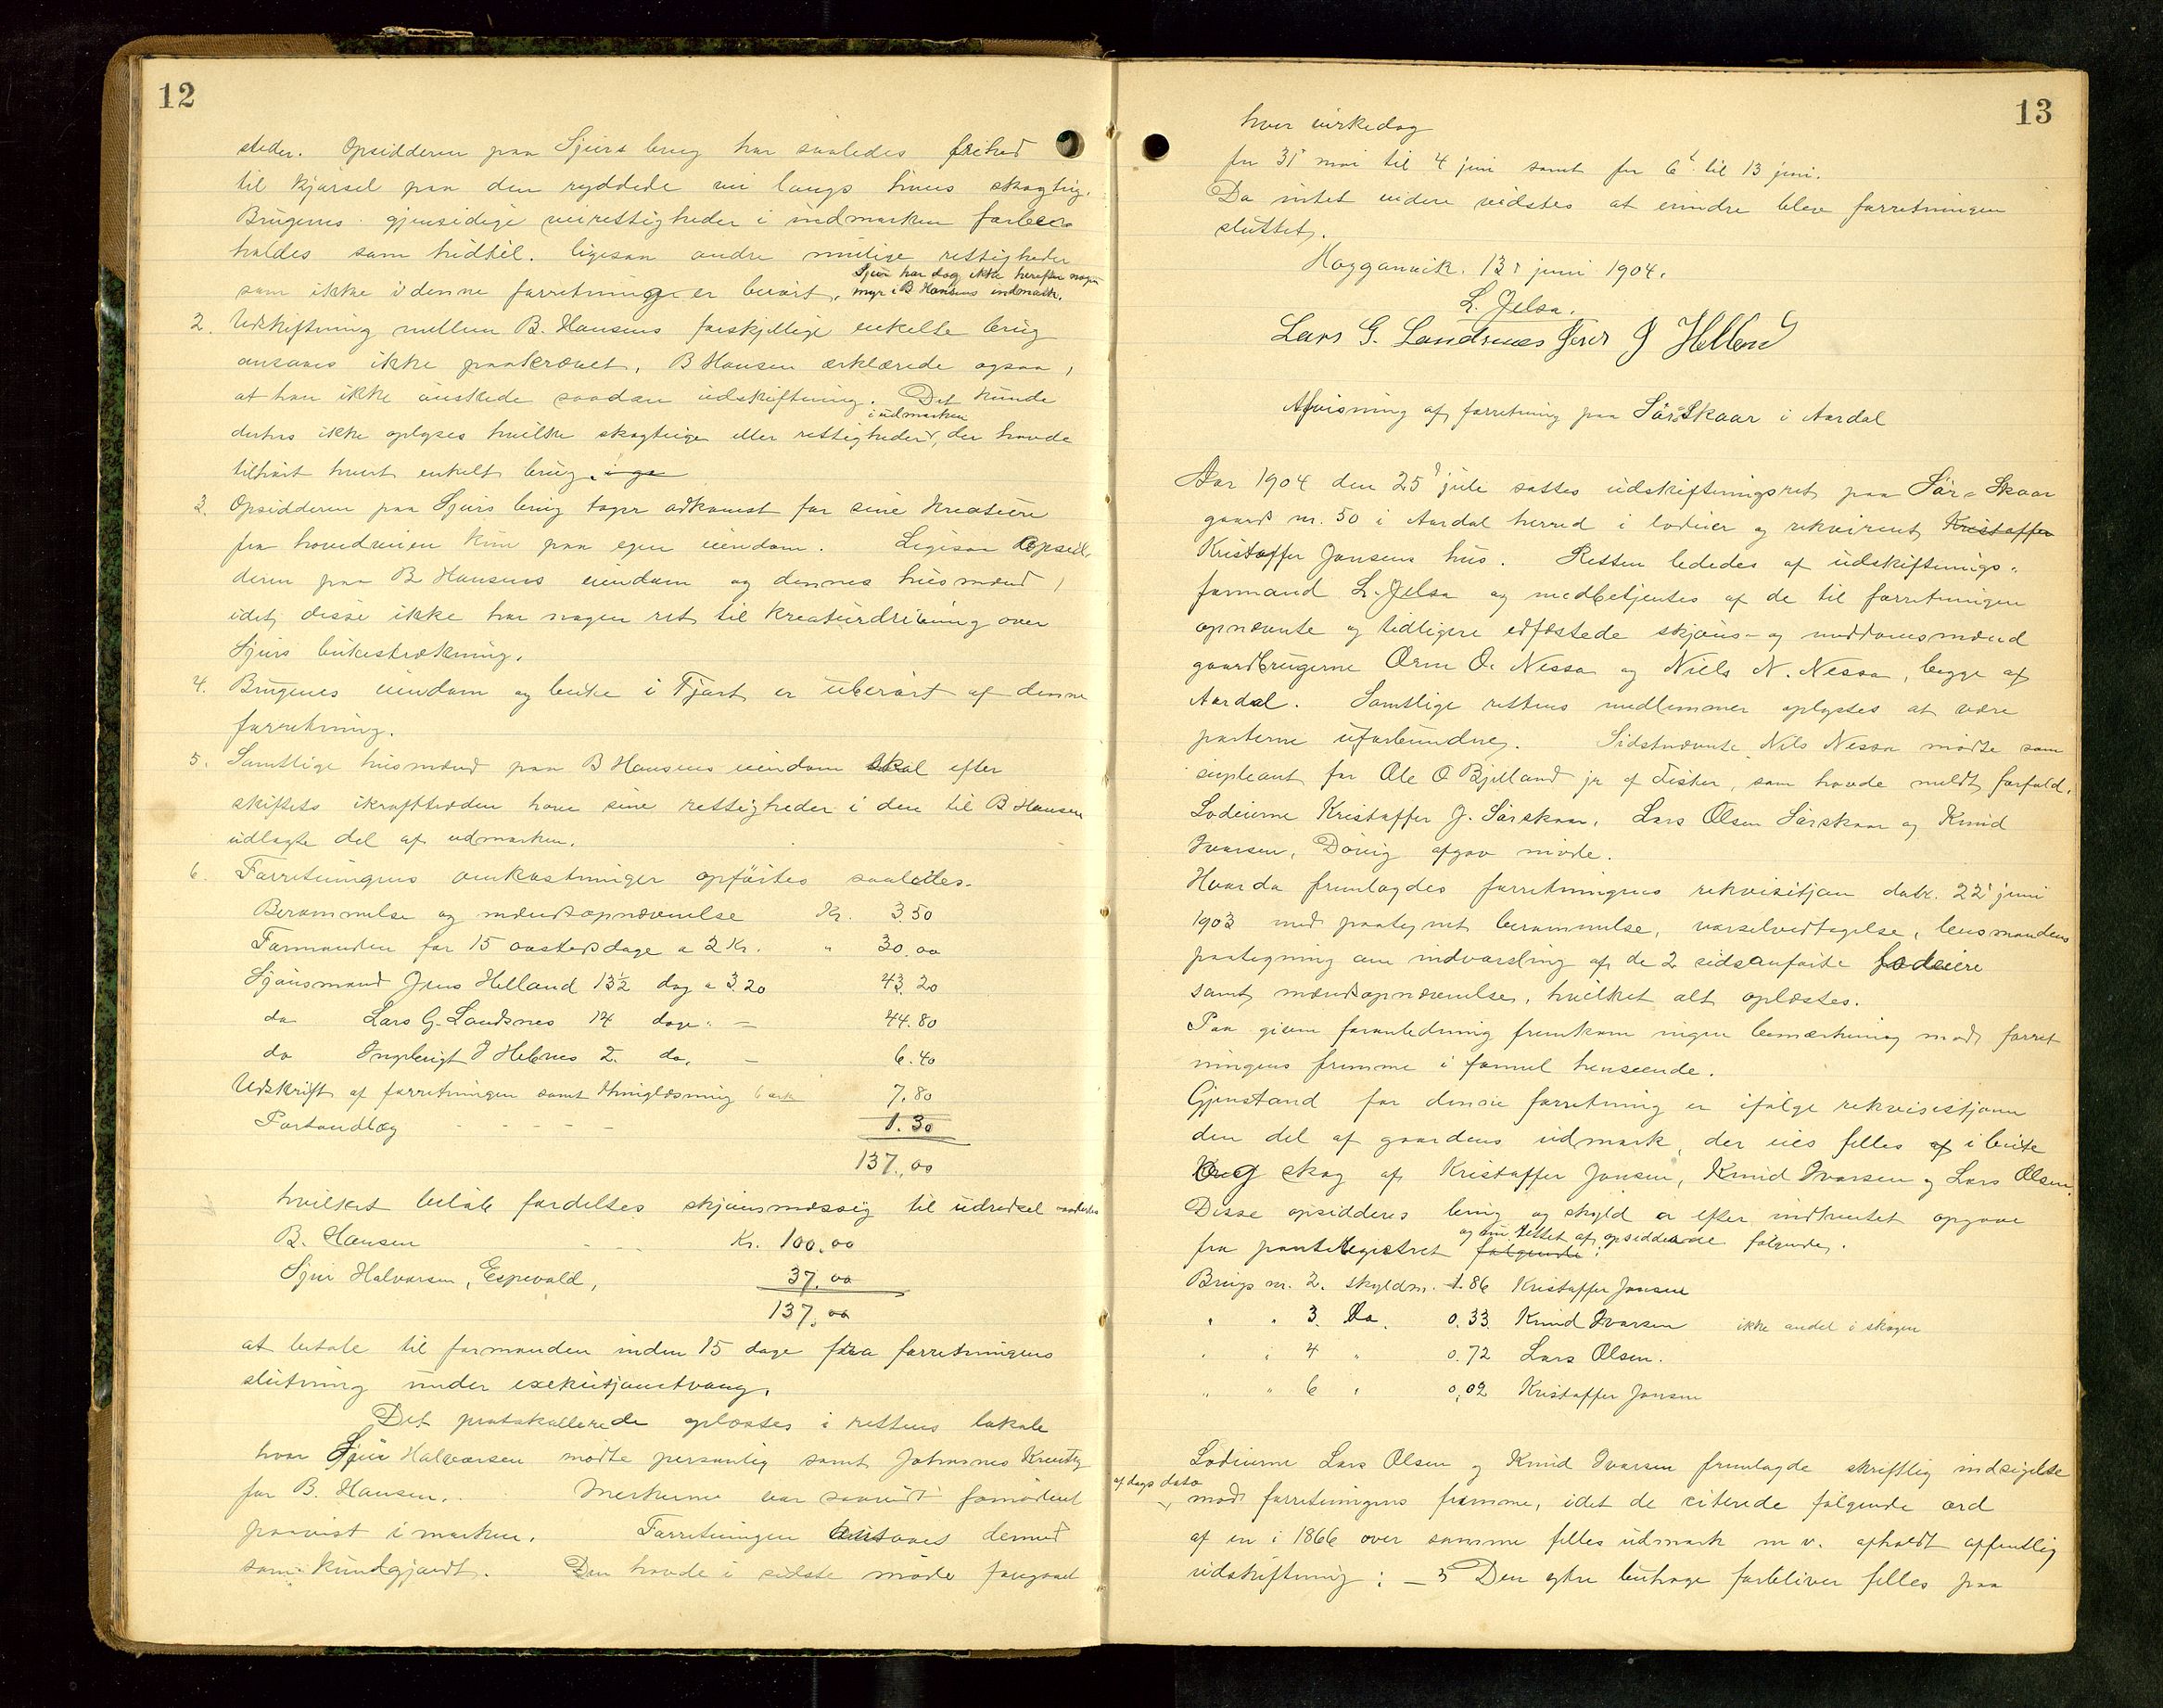 12
steder. Opsidderen paa Sjurs brug har saaledes frihed
til kjørsel paa den ryddede vei langs hans skogteig.
Brugenes gjensidige veirettigheder i indmarken forbe-
holdes som hidtil. ligesaa andre mulige rettigheder
som ikke i denne forretning er berørt. Sjur har dog ikke herefter nogen
myr i B Hansens indmark.
2. Udskiftning mellem B. Hansens forskjellige enkelte brug
ansaaes ikke paakrævet, B Hansen erklærede ogsaa,
at han ikke ønskede saadan udskiftning. Det kunde
derhos ikke oplyses hvilke skogteige eller rettigheder i udmarken, der havde
tilhørt hvert enkelt brug.
3. Opsidderen paa Sjurs brug tager adkomst for sine kreature
fra hovedveien kun paa egen eiendom. Ligesaa Opsid-
deren paa B Hansens eiendom og dennes husmænd,
idet disse ikke har nogen ret til kreaturdrivning over
Sjurs beitestrækning.
4. Brugenes eiendom og beite i Fjort er uberørt af denne
forretning.
5. Samtlige husmænd paa B Hansens eiendom skal efter
skiftets ikrafttræden have sine rettigheder i den til B Hansen
udlagte del af udmarken.
6. Forretningens omkostninger opførtes saaledes.
Berammelse og mændsopnævnelse Kr. 3.50
Formanden for 15 arbeidsdage a 2 Kr. " 30.00
Skjønsmand Jens Helland 13½ dag a 3.20 43.20
do Lars G. Landsnes 14 dage " — 44.80
do Ingebrigt J Hebnes 2 do. — 6.40
Udskrift af forretningen samt thinglæsning 6 ark 7.80
Portoudlæg - - - - - 1.30
137.00
hvilket beløb fordeltes skjønsmæssig til udredsel saaledes
B. Hansen Kr. 100.00
Sjur Halvorsen, Espevold, 37.00
137.00
at betale til formanden inden 15 dage fra forretningens
slutning under exekutjonstvang.
Det protokollerede oplæstes i rettens lokale
hvor Sjur Halvorsen mødte personlig samt Johannes
for B. Hansen. Merkerne var saavidt fornødent
paavist i marken. Forretningen ansaaes dermed
som kundgjordt. Den havde i sidste møde foregaaet
13
hver virkedag
fra 31' mai til 4 juni samt fra 6' til 13 juni.
Da intet videre vidstes at erindre blev forretningen
sluttet.
Hogganvik. 13' juni 1904.
L. Jelsa.
Lars G. Landsnes Jens J Helland
Afvisning af forretning paa Sør-Skaar i Aardal
Aar 1904 den 25' juli sattes udskiftningsret paa Sør-Skaar
gaards nr. 50 i Aardal herred i lodeier og rekvirent Kristoffer
Kristoffer Jonsens hus. Retten lededes af udskiftnings-
formand L. Jelsa og medbetjentes af de til forretningen
opnævnte og tidligere edfæstede skjøns- og meddomsmænd
gaardbrugerne Orm O. Nessa og Niels N. Nessa, begge af
Aardal. Samtlige rettens medlemmer oplystes at være
parterne uforbundne. Sidstnævnte Nils Nessa mødte som
supleant for Ole O Bjelland jr af Fister, som havde meldt forfald.
Lodeierne Kristoffer J. Sørskaar, Lars Olsen Sørskaar og Knud
Ivarsen, afgav møde.
Hvorda fremlagdes forretningens rekvisitjon datr. 22' juni
1903 med paategnet berammelse, varselvedtagelse, lensmandens
paategning om indvarsling af de 2 sidsanførte lodeiere
samt mændsopnævnelse, hvilket alt oplæstes.
Paa given foranledning fremkom ingen bemærkning mod forret
ningens fremme i formel henseende.
Gjenstand for denne forretning er ifølge rekvisitjonen
den del af gaardens udmark, der eies felles af i beite
og skog af Kristoffer Jonsen, Knud Ivarsen og Lars Olsen.
Disse opsidderes brug og skyld er efter indhentet opgave
fra panteregistret følgende: og tiltet af opsidderne følgende.
Brugs nr. 2. skyldm. 1.86 Kristoffer Jonsen
" " 3. Do. 0.33 Knud Ivarsen ikke andel i skogen
" " 4 " 0.72 Lars Olsen.
" " 6 " 0,02 Kristoffer Jonsen
Lodeierne Lars Olsen og Knud Ivarsen fremlagde skriftlig indsigelse
af dags dato
mod forretningens fremme, idet de citerede følgende ord
af en i 1866 over samme felles udmark m v. afholdt offentlig
udskiftning: — " Den ytre buhage forbliver felles paa